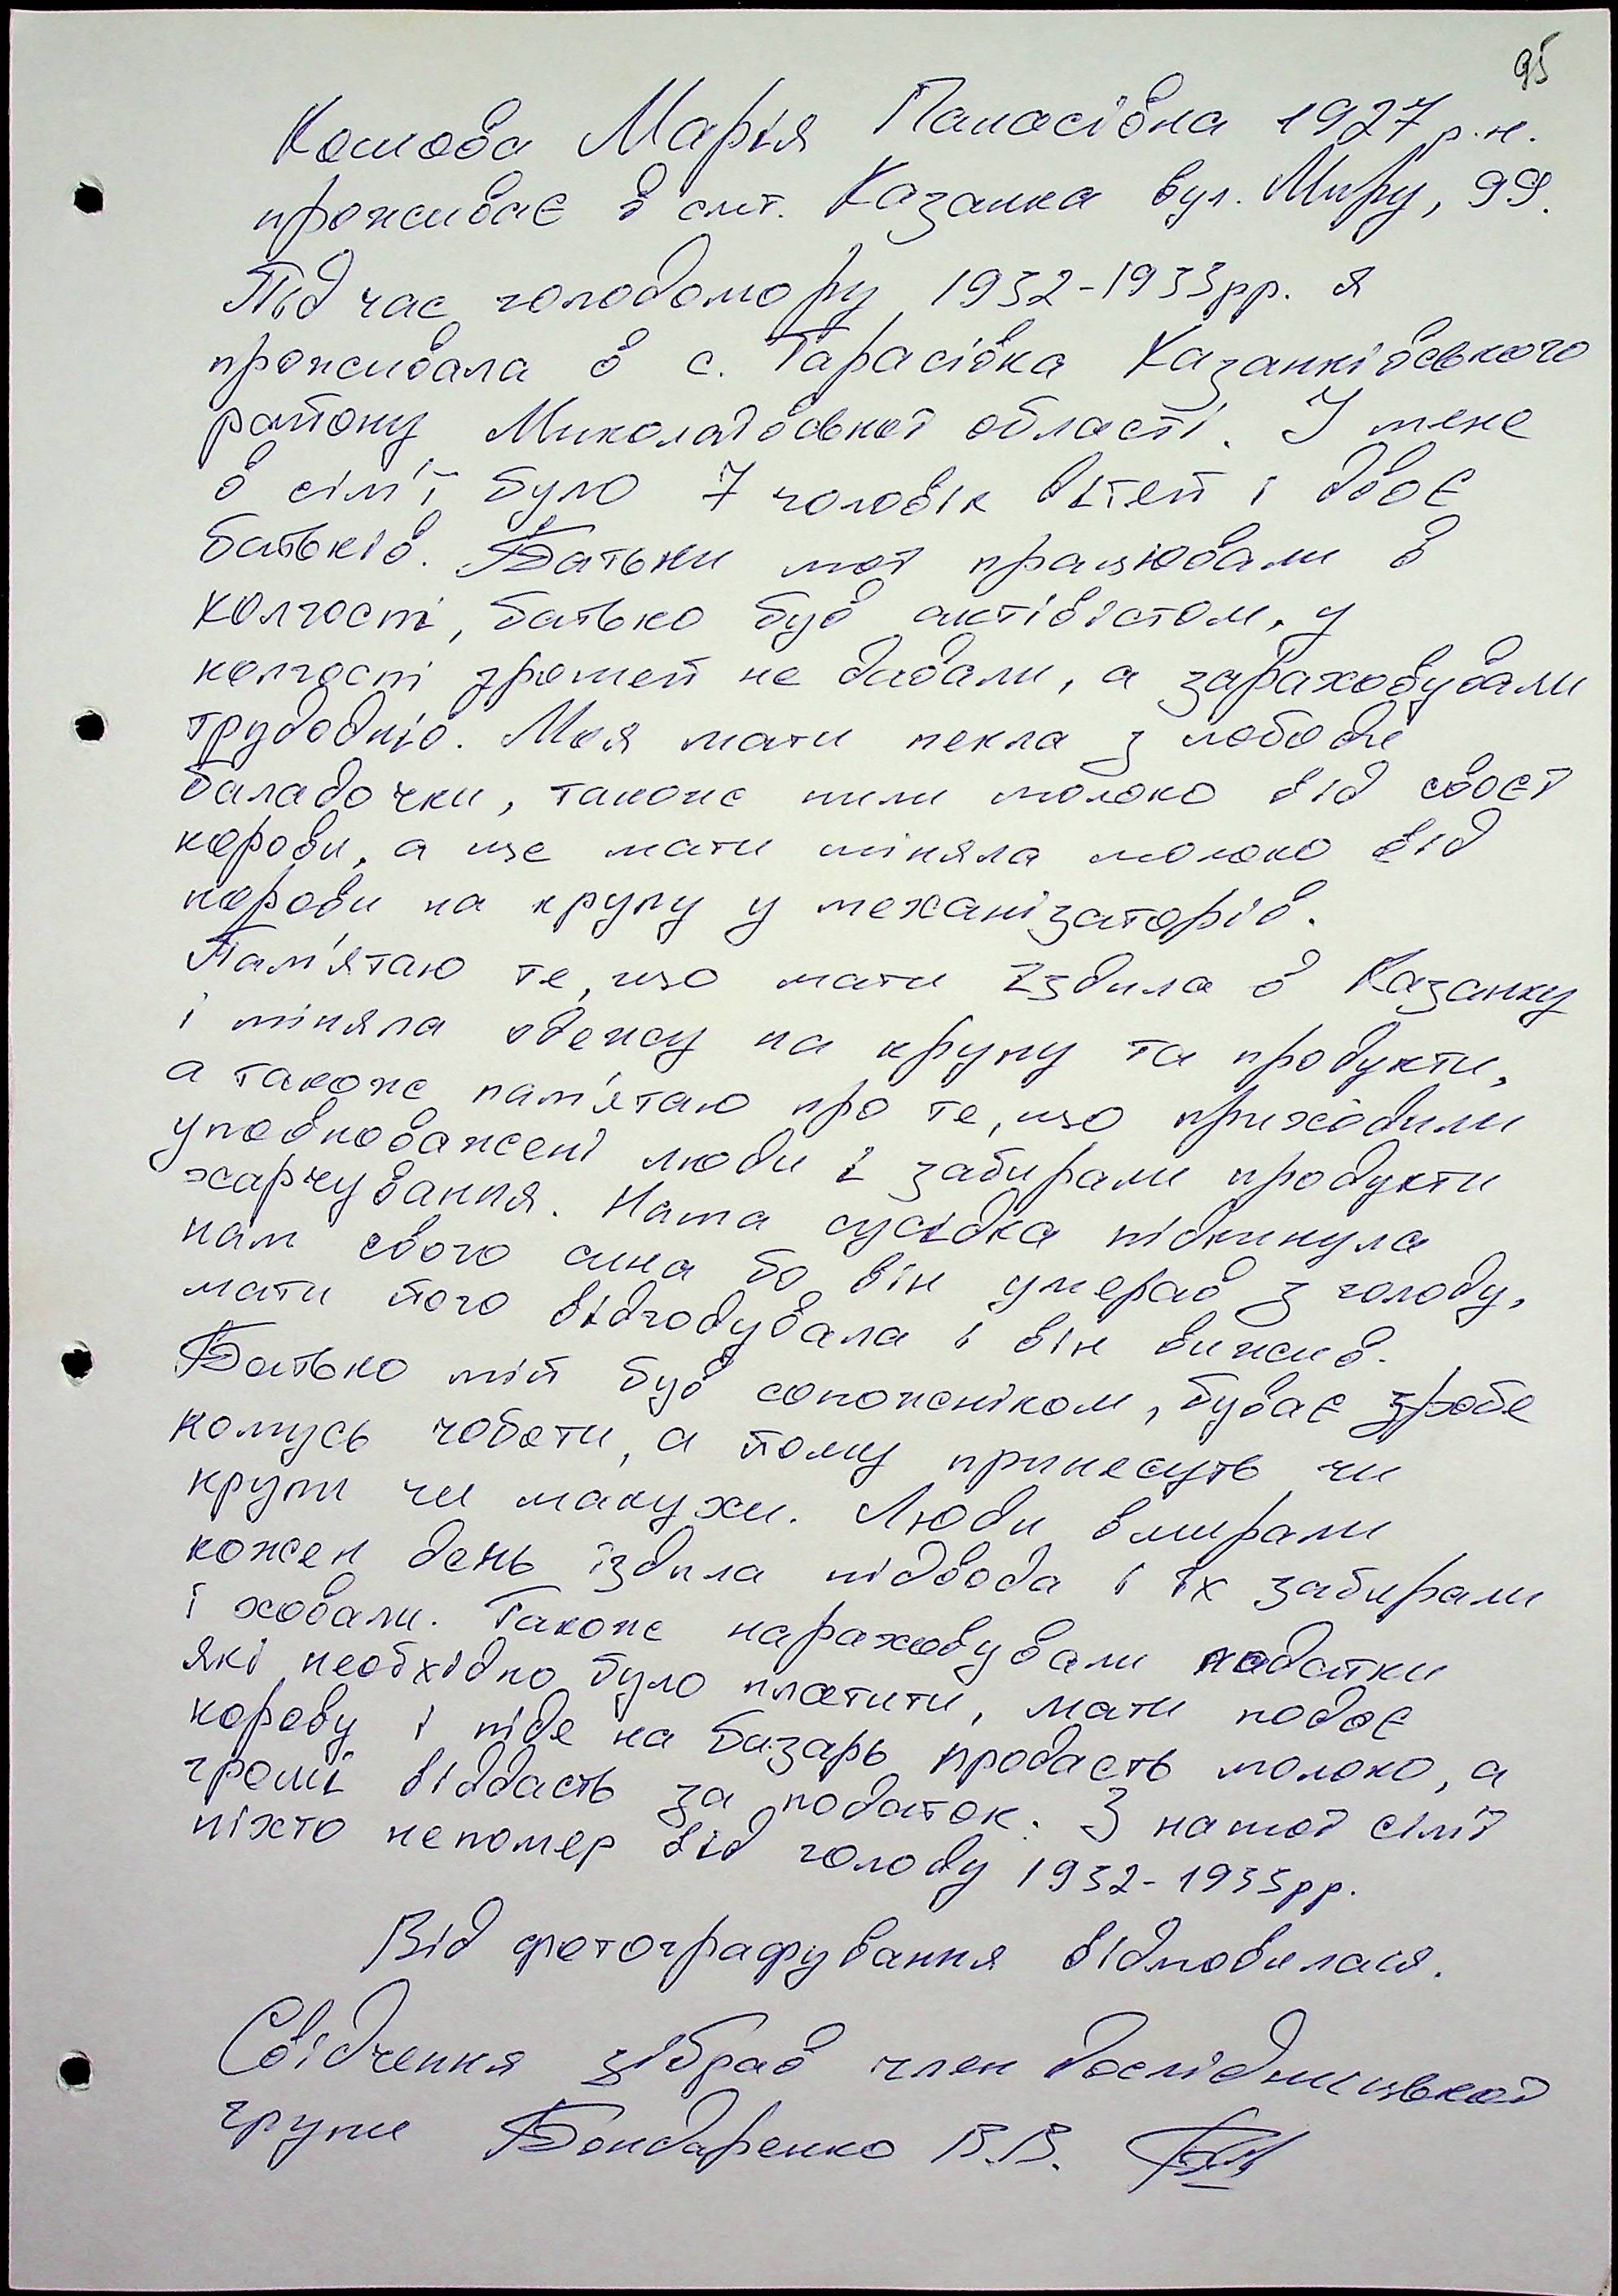 95
Комова Марія Панасівна 1927 р.н.
проживає в смт. Казанка вул. Миру, 99.
Під час голодомору 1932-1933рр. я
проживала в с. Тарасівка Казанківського
району Миколаївської області. У мене
в сім'ї було 7 чоловік дітей і двоє
батьків. Батьки мої працювали в
колгоспі, батько був актівістом, у
колгоспі грошей не давали, а зараховували
трудоднів. Моя мати пекла з лободи
баладочки, також пили молоко від своєї
корови, а ще мати міняла молоко від
корови на крупу у механізаторів.
Пам'ятаю те, що мати їздила в Казанку
і міняла одежу на крупу та продукти,
а також пам'ятаю про те, що приходили
уповноважені люди і забирали продукти
харчування. Наша сусідка підкинула
нам свого сина бо він умерав з голоду,
мати його відгодувала і він вижив.
Батько мій був сопожніком, буває зробе
комусь чоботи, а йому принесуть чи
крупи чи макухи. Люди вмирали
кожен день їздила підвода і їх забирали
і ховали. Також нараховували податки
які необхідно було платити, мати подоє
корову і піде на базарь продасть молоко, а
гроші віддасть за податок. З нашої сімї
ніхто непомер від голоду 1932-1933рр.
Від фотографування відмовилася.
Свідчення зібрав член дослідницької
групи Бондаренко В.В.